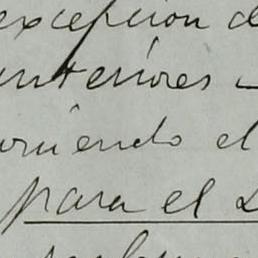 excepcion de
interiores
uriendo el
para el